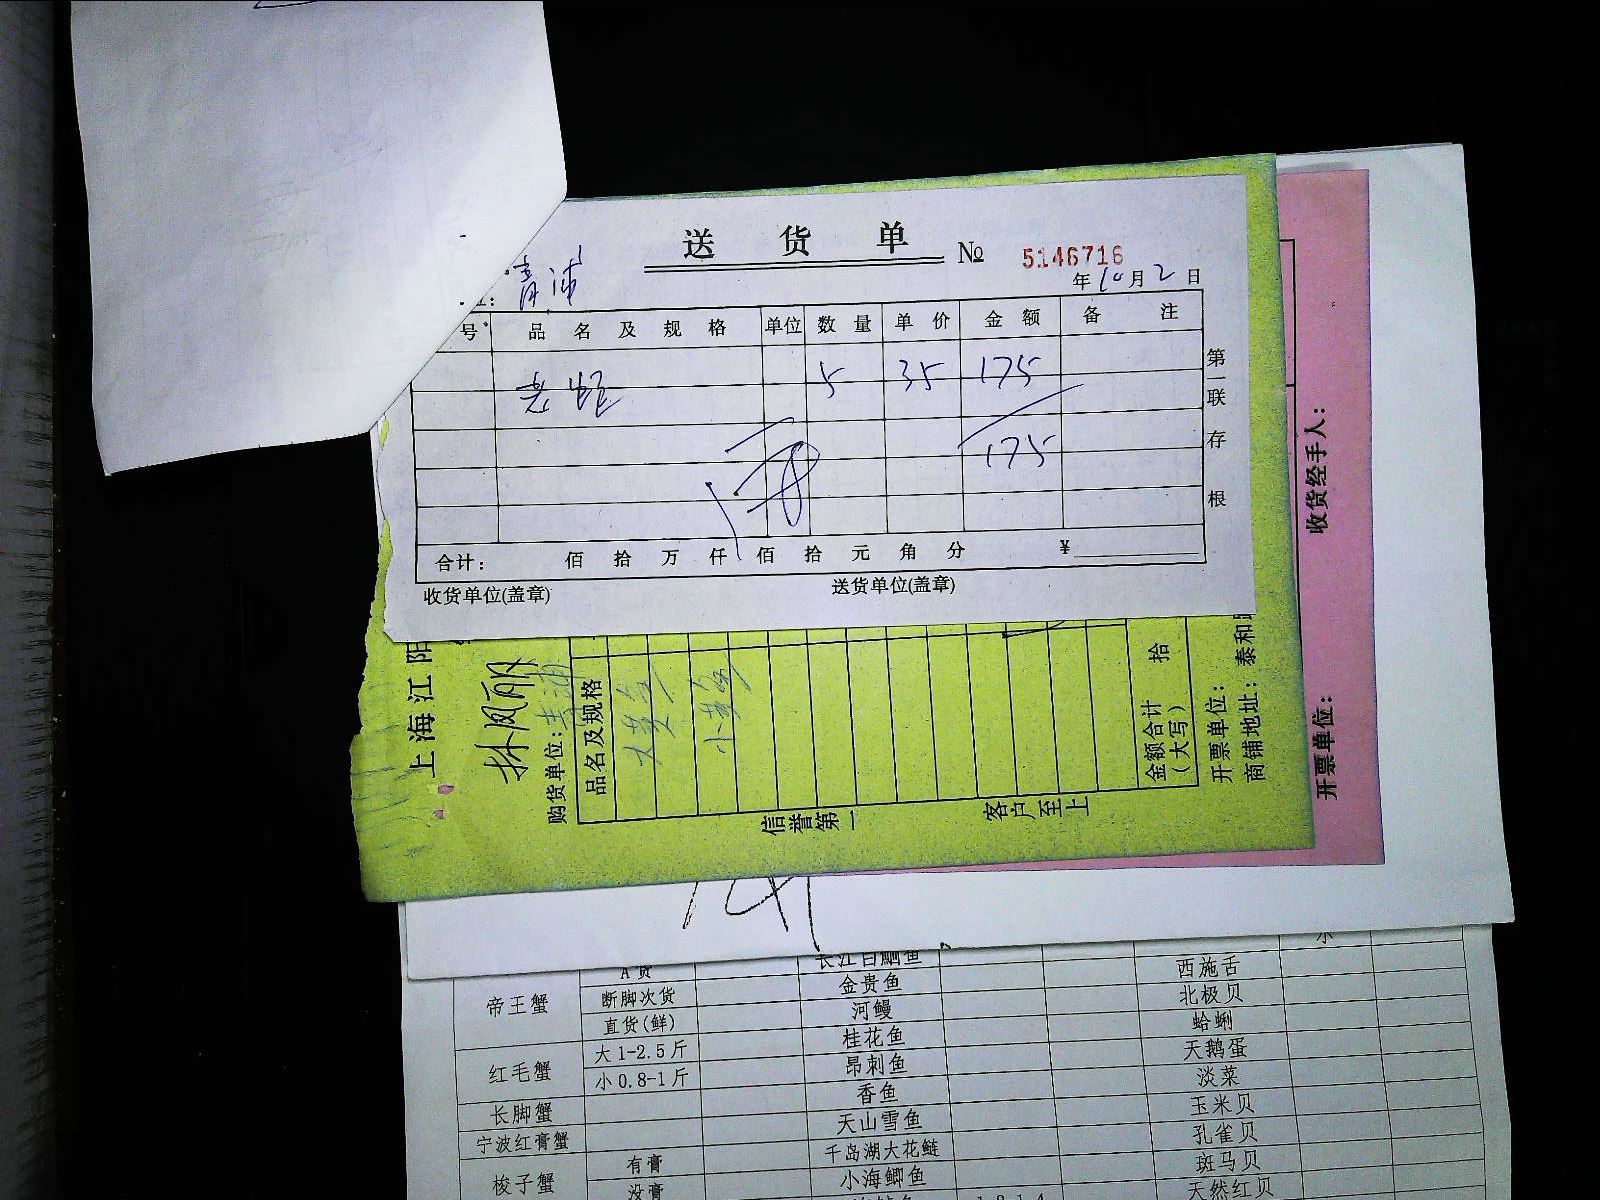 送 货 单 № 5146716
青浦
年 10 月 2 日
号 品 名 及 规 格 单位 数 量 单 价 金 额 备 注
老虹 5 35 175
175
合计: 佰 拾 万 仟 佰 拾 元 角 分 ¥
收货单位(盖章) 送货单位(盖章)
第一联存根
上海江阳
林凤丽
购货单位: 青浦
品名及规格
大黄鱼
小黄鱼
金额合计(大写) 拾
开票单位:
商铺地址: 泰和
信誉第一 客户至上
收货经手人:
开票单位:
A货 长江白鮰鱼
帝王蟹 断脚次货 金贵鱼 西施舌
直货(鲜) 河鳗 北极贝
红毛蟹 大1-2.5斤 桂花鱼 蛤蜊
小0.8-1斤 昂刺鱼 天鹅蛋
长脚蟹 香鱼 淡菜
宁波红膏蟹 天山雪鱼 玉米贝
梭子蟹 有膏 千岛湖大花鲢 孔雀贝
没膏 小海鲫鱼 斑马贝
天然红贝